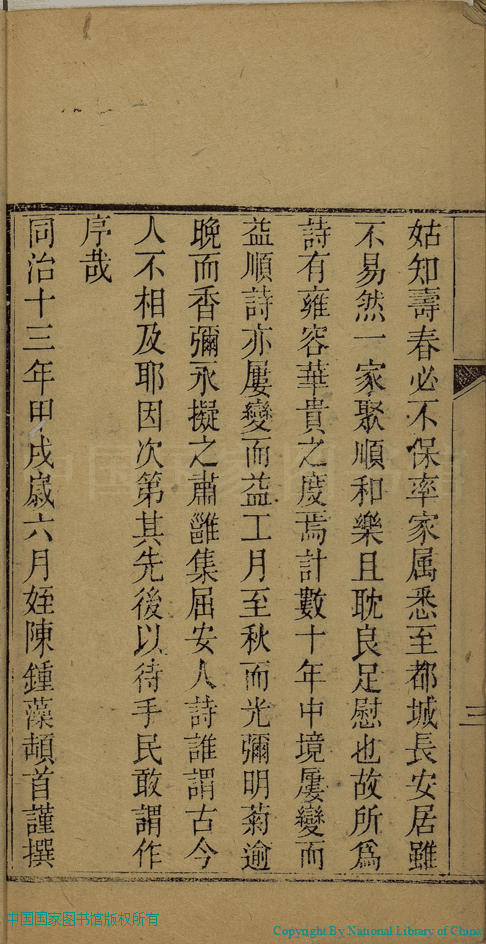 姑知壽春必不保率家属悉至都城長安居雖
不易然一家聚順和樂且耽良足慰也故所爲
詩有雍容華貴之度焉計數十年中境屢變而
益順詩亦屢變而益工月至秋而光彌明菊逾
晚而香彌永擬之肅雝集屈安人詩誰謂古今
人不相及耶因次第其先後以待手民敢謂作
序哉
同治十三年甲戌歲六月姪陳鍾藻頓首謹撰
三
中国国家图书馆
中国国家图书馆版权所有
Copyright By National Library of China